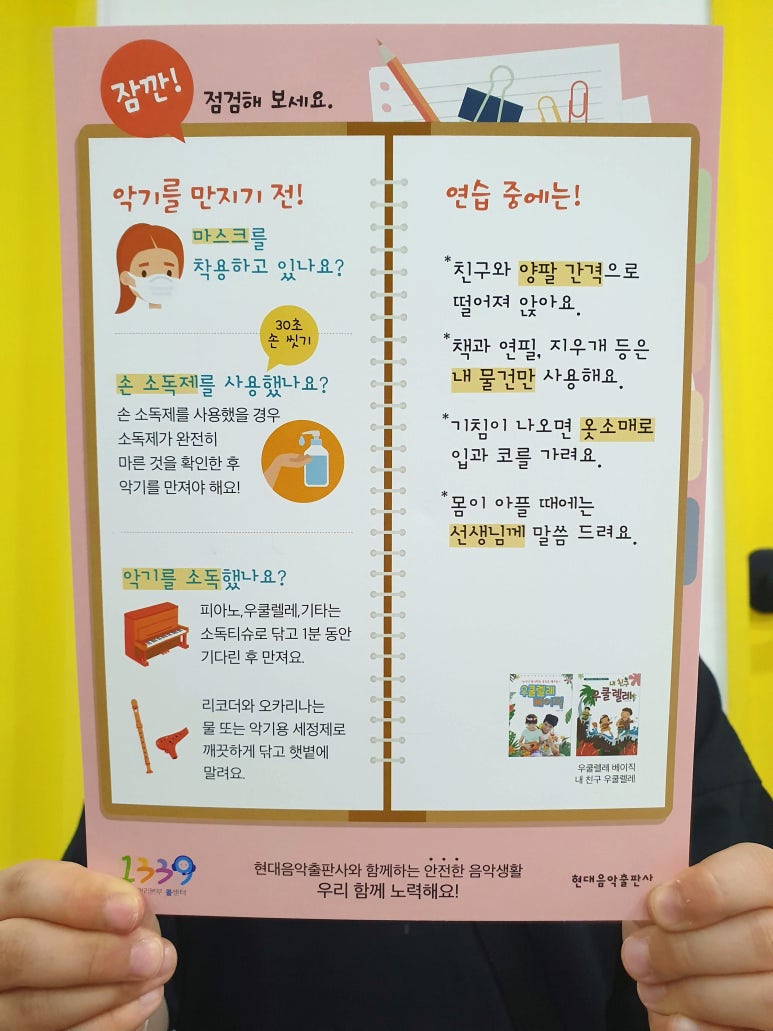 잠깐!
점검해 보세요.
악기를 만지기 전!
마스크를
착용하고 있나요?
30초
손 씻기
손 소독제를 사용했나요?
손 소독제를 사용했을 경우
소독제가 완전히
마른 것을 확인한 후
악기를 만져야 해요!
악기를 소독했나요?
피아노,우쿨렐레,기타는
소독티슈로 닦고 1분 동안
기다린 후 만져요.
리코더와 오카리나는
물 또는 악기용 세정제로
깨끗하게 닦고 햇볕에
말려요.
연습 중에는!
*친구와 양팔 간격으로
떨어져 앉아요.
*책과 연필, 지우개 등은
내 물건만 사용해요.
*기침이 나오면 옷소매로
입과 코를 가려요.
*몸이 아플 때에는
선생님께 말씀 드려요.
우쿨렐레
베이직
내 친구
우쿨렐레
우쿨렐레 베이직
내 친구 우쿨렐레
1339
콜센터
현대음악출판사와 함께하는 안전한 음악생활
우리 함께 노력해요!
현대음악출판사